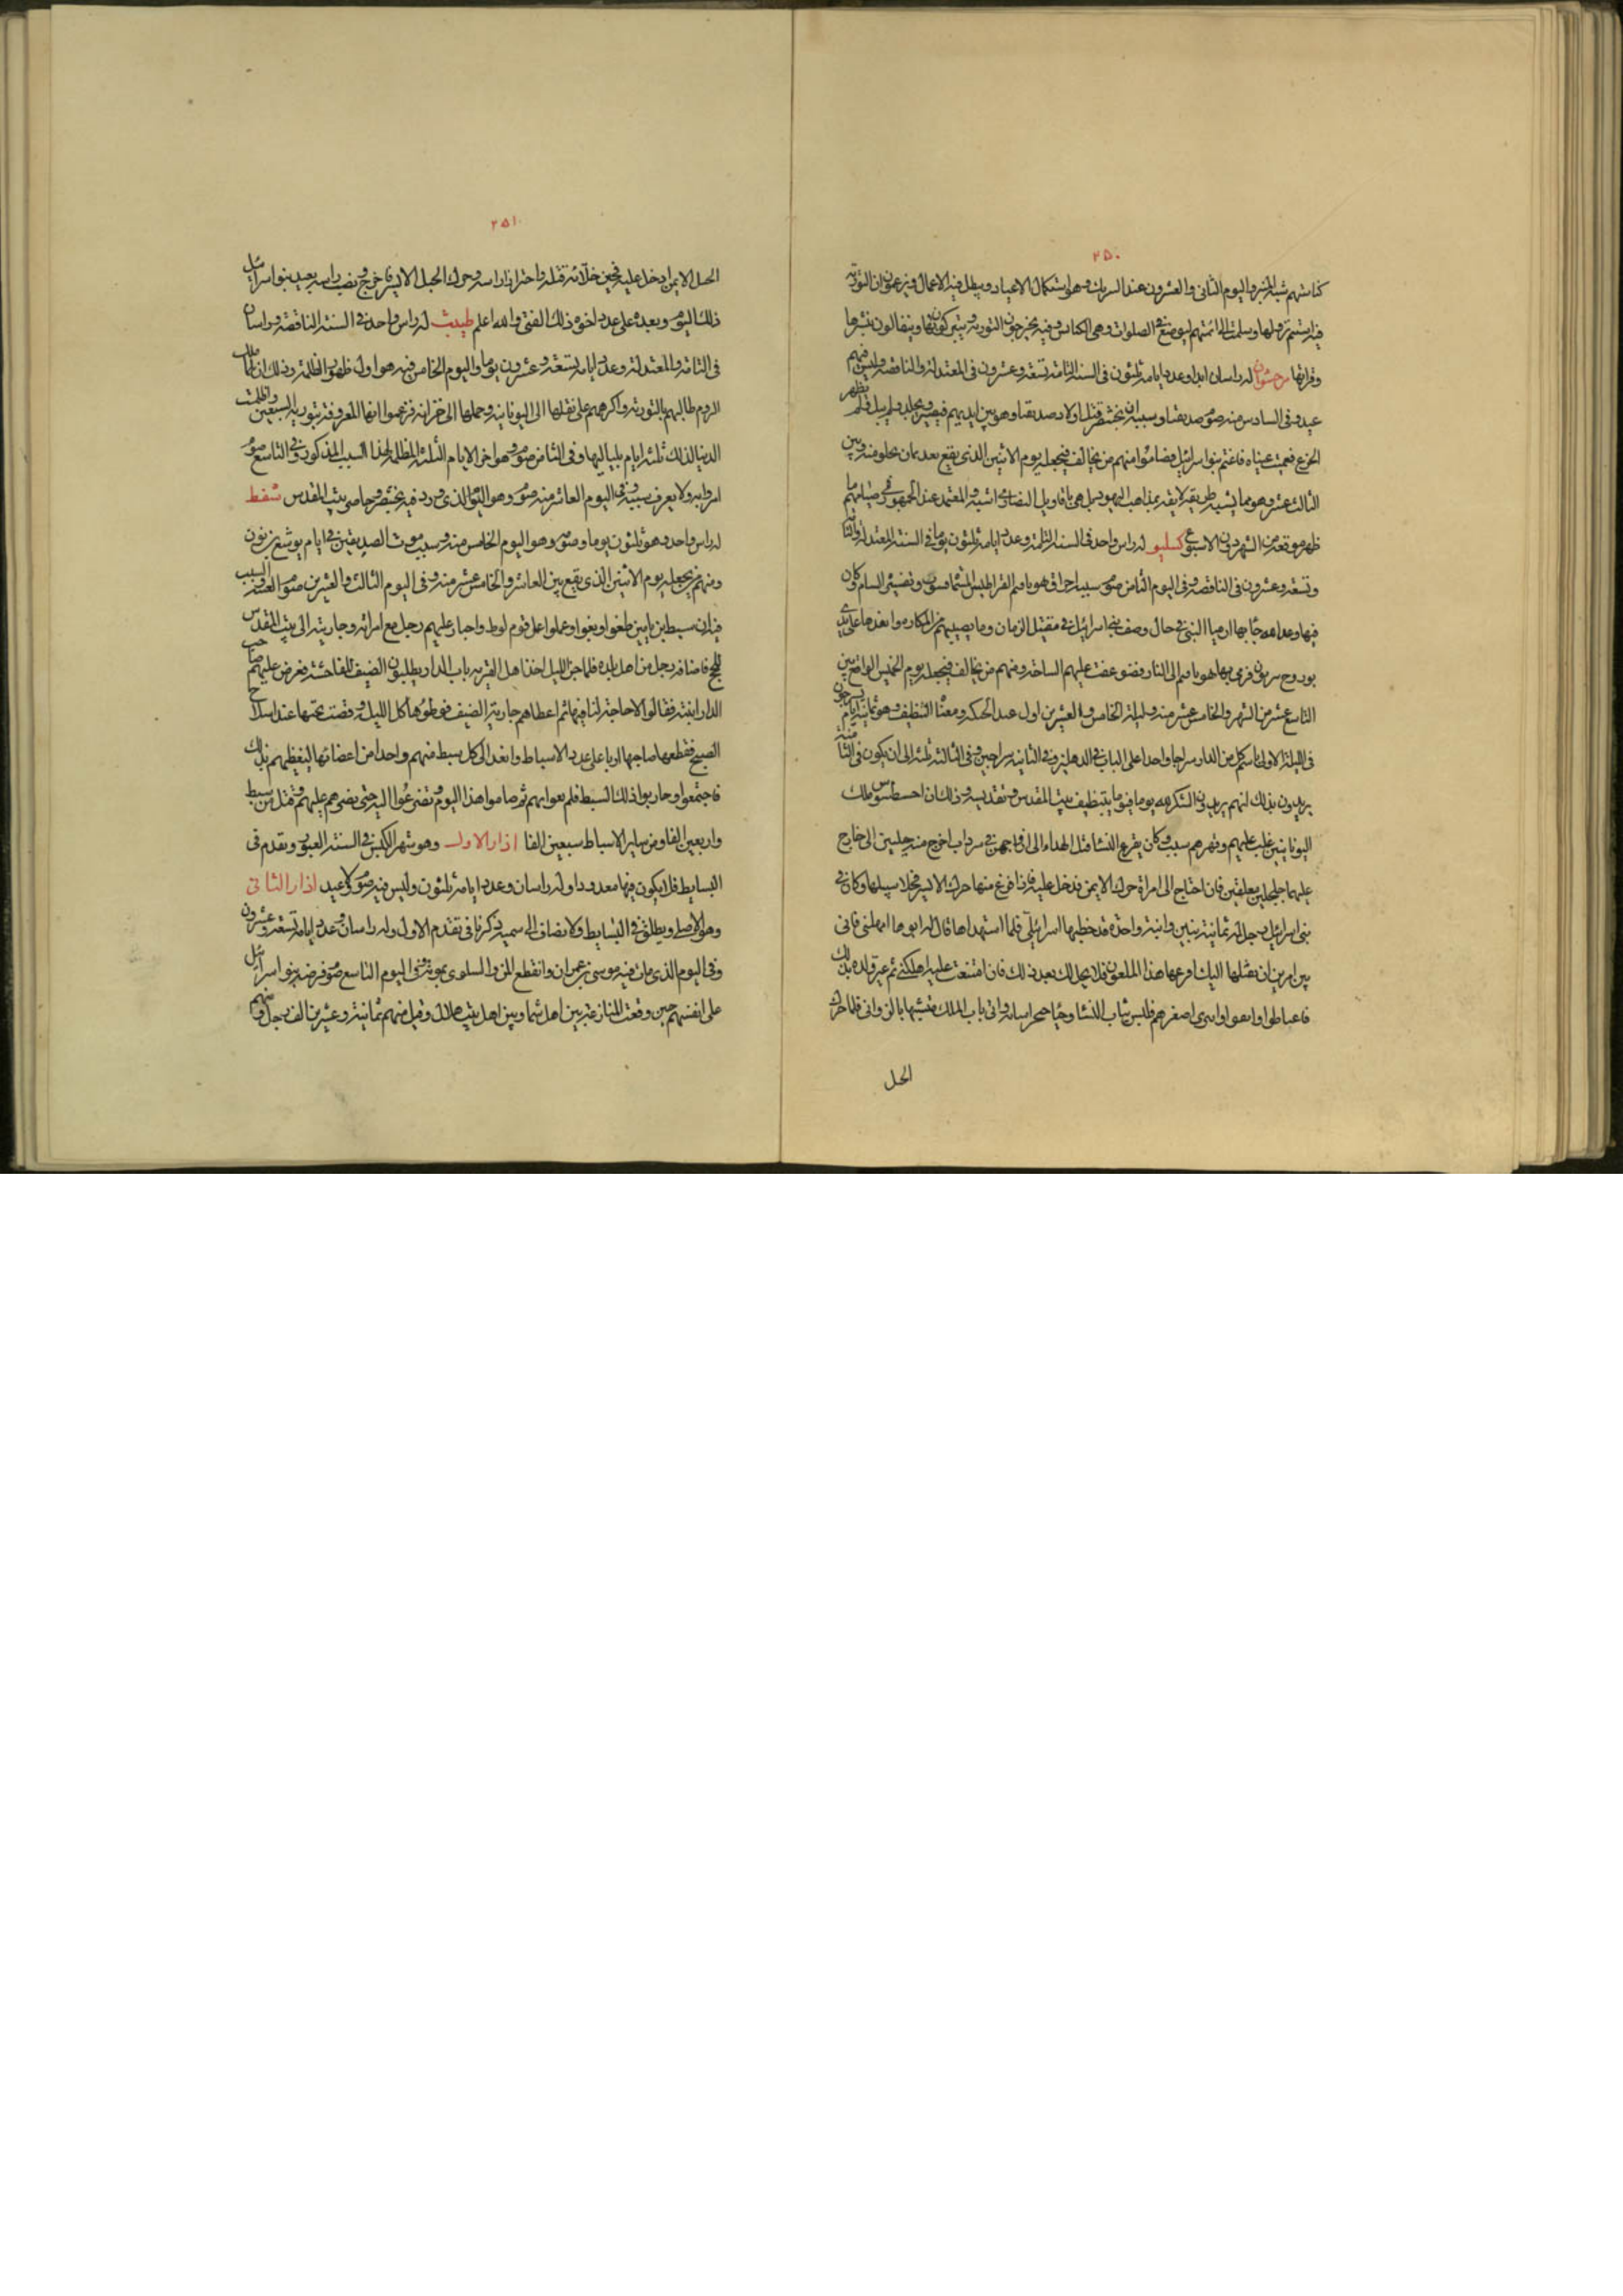 ٢٥٠
كنايتهم شبه المنبر واليوم الثانى والعشرون عند السريك وهو استكمال الاعياد ويبطل فيه الاعمال ويزعمون ان التورية
فيه استتم نزولها وسلمت الى ائمتهم ليوضع فى الصلوات وهى الكنايس وفيه يخرجون التورية ويتبركون بها ويتفالون بنشرها
وقراتها مرحشوان له راسان ابدا وعدد ايامه ثلثون فى السنة التامة وتسعة وعشرون فى المعتدلة والناقصة وليس فيهم
عيد وفى السادس منه صوم صدقيا وسببه ان بختنصر قتل اولاد صدقيا وهو بين ايديهم فيصبر ويتجلد ولم يبك فلم يظهر
الجزع فعميت عيناه فاغتم بنو اسرائيل فصاموا ومنهم من يخالف فيجعله يوم الاثنين الذى يقع بعد ثمان يخلو منه وبين
الثالث عشر وهو مما يشبه طريقة لا يقه بمذاهب اليهود بل هى باقاويل النصارى اشبه والمعتمد عند الجمهور فى صيامهم ما
ظهر موقعه من الشهر دون الاسبوع كسليو له راس واحد فى السنة الثلثة وعدد ايامه ثلثون يوما فى السنة المعتدلة والتامة
وتسعة وعشرون فى الناقصة وفى اليوم الثامن صوم سببه احراق هوياقيم القراطيس التى فيها وتفسير السام كان
فيها وعد الله جا بها ارميا النبى فى حال وصف بنى اسرائيل فى مقتبل الزمان وما يصيبهم من المكاره وانفدها على يدى
بوروح بن نريون فرمى بها هوياقيم الى النار فتضوعفت عليهم الساخة ومنهم من يخالف فيجعله يوم الخميس الواقع بين
التاسع عشر من الشهر والخامس عشر منه وليلة الخامس والعشرين اول عيد الحنكة ومعناه التنظيف وهو ثمانية ايام يسرجون
فى الليلة الاولى باسم كل من الدار سراجا واحدا على الباب فى الدهليز وفى الثانية سراجين وفى الثالثة ثلثة الى ان يكون فى الثامنة ثمانية
يريدون بذلك انهم يزيدون الشكر لله يوما فيوما بتنظيف بيت المقدس وتقديسه وذلك ان احسطس ملك
اليونانيين غلب عليهم وقهرهم وكان يفرع النسا قبل الهداء الى ازواجهن فى سرداب اخرج منه حبلين الى خارج
عليهما جلجلين معلقين فان احتاج الى امراة حرك الايمن فدخل عليه فاذا فرغ منها حرك الايسر فخلا سبيلها وكان فى
بنى اسرائيل رجل له ثمانية بنين وابنة واحدة قد خطبها اسرائيلى فلما استهداها قال له ابوها امهلنى فانى
بين امرين ان نقلتها اليك افرعها هذا الملعون فلا يحل لك بعد ذلك فان امتنعت عليه اهلكنى ثم عير ولده بذلك
فاغتاظوا وانفوا اصغرهم فلبس ثياب النسا وخبا خنجرا وانى باب الملك متشبها بالزوانى فلما حرك
الحبل
٢٥١
الحبل الايمن ادخل عليه فحين خلا به قتله واحتز راسه وحرك الحبل الايسر فاخرج ونصب راسه بعيد بنو اسرائيل
ذلك اليوم وبعده على عدد اخوة ذلك الفتى والله اعلم طيبث له راس واحد فى السنة الناقصة وراسان
فى التامة والمعتدلة وعدد ايامه تسعة وعشرون يوما واليوم الخامس فيه هو اول ظهور الظلمة وذلك ان ملك
الروم طالبهم بالتورية واكرههم على نقلها الى اليونانية وحملها الى خزانته فزعموا انها المعروفة بتورية السبعين واظلمت
الدنيا لذلك ثلثة ايام بلياليها وفى الثامن صوم وهو اخر الايام الثلثة المظلمة لهذا السبب المذكور وفى التاسع صوم
امروا به ولا يعرف سببه وفى اليوم العاشر منه صوم وهو اليوم الذى ورد فيه بختنصر وحاصر بيت المقدس شفط
له راس واحد وهو ثلثون يوما وصوم وهو اليوم الخامس منه وسببه موت الصديقين فى ايام يوشع بن نون
ومنهم من يجعله يوم الاثنين الذى يقع بين العاشر والخامس عشر منه وفى اليوم الثالث والعشرين صوم العصبة والسبب
فيه ان سبط بن يامين طغوا وبغوا وعملوا عمل قوم لوط واجتاز عليهم رجل مع امراته وجاريته الى بيت المقدس
للحج فاضافه رجل من اهل بلده فلما جن الليل اخذ اهل القرية باب الدار يطلبون الضيف للفاحشة فعرض عليهم صاحب
الدار ابنته فقالوا لا حاجة لنا فيها ثم اعطاهم جارية الضيف فوطوها كل الليل وقضت نحبها عند انسلاخ
الصبح فقطعها صاحبها اربا على عدد الاسباط وانفد الى كل سبط منهم واحدا من اعضائها ليغيظهم بذلك
فاجتمعوا وحاربوا ذلك السبط فلم يقوا بهم ثم صاموا هذا اليوم وتضرعوا اليه حتى نصرهم عليهم وقتل من سبط
واربعين الفا ومن ساير الاسباط سبعين الفا اذار الاول وهو شهر الكبس فى السنة العبور ويقدم فى
البسايط فلا يكون فيها معدودا وله راسان وعدد ايامه ثلثون وليس فيه صوم ولا عيد اذار الثانى
وهو الاصلى ويطلق فى البسايط ولا يضاف الى سميه لما ذكرنا فى تقدم الاول وله راسان وعدد ايامه تسعة وعشرون
وفى اليوم الذى مات فيه موسى بن عمران وانقطع المن والسلوى بموته وفى اليوم التاسع صوم فرضه بنو اسرائيل
على انفسهم حين وقعت المنازعة بين اهل شما وبين اهل بيت هلال وقتل منهم ثمانية وعشرين الف رجل